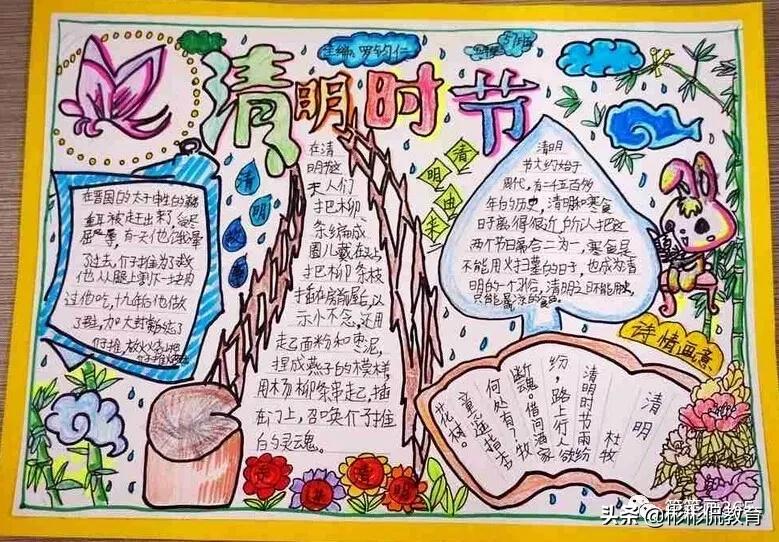 主编：罗钧仁
清明时节
清
明
故
事
在晋国的太子申生的
被赶出来，受尽
屈辱，有一天他饿晕
了过去，介子推为了救
他从腿上割下一块肉
过他吃，十九年后他做
放火烧
在清
明节这
天人们
把柳
条编成
圈儿戴在头上
把柳条枝
插在房前屋后，以
示怀念，还用
起面粉和枣泥，
捏成燕子的模样，
用杨柳条串起，插
在门上，召唤介子推
的灵魂。
清
明
由
来
清明
节大约始于
周代，有二千五百多
年的历史，清明和寒食
日子离得很近，所以把这
两个节日聚合二为一，寒食是
不能用火扫墓的日子，也成为清
明的一个习俗，清明之日不能用火
诗情画意
清明
杜牧
清明时节雨纷
纷，路上行人欲
断魂。借问酒家
何处有？牧
童遥指杏
花村。
清
明
头条@彬彬侃教育